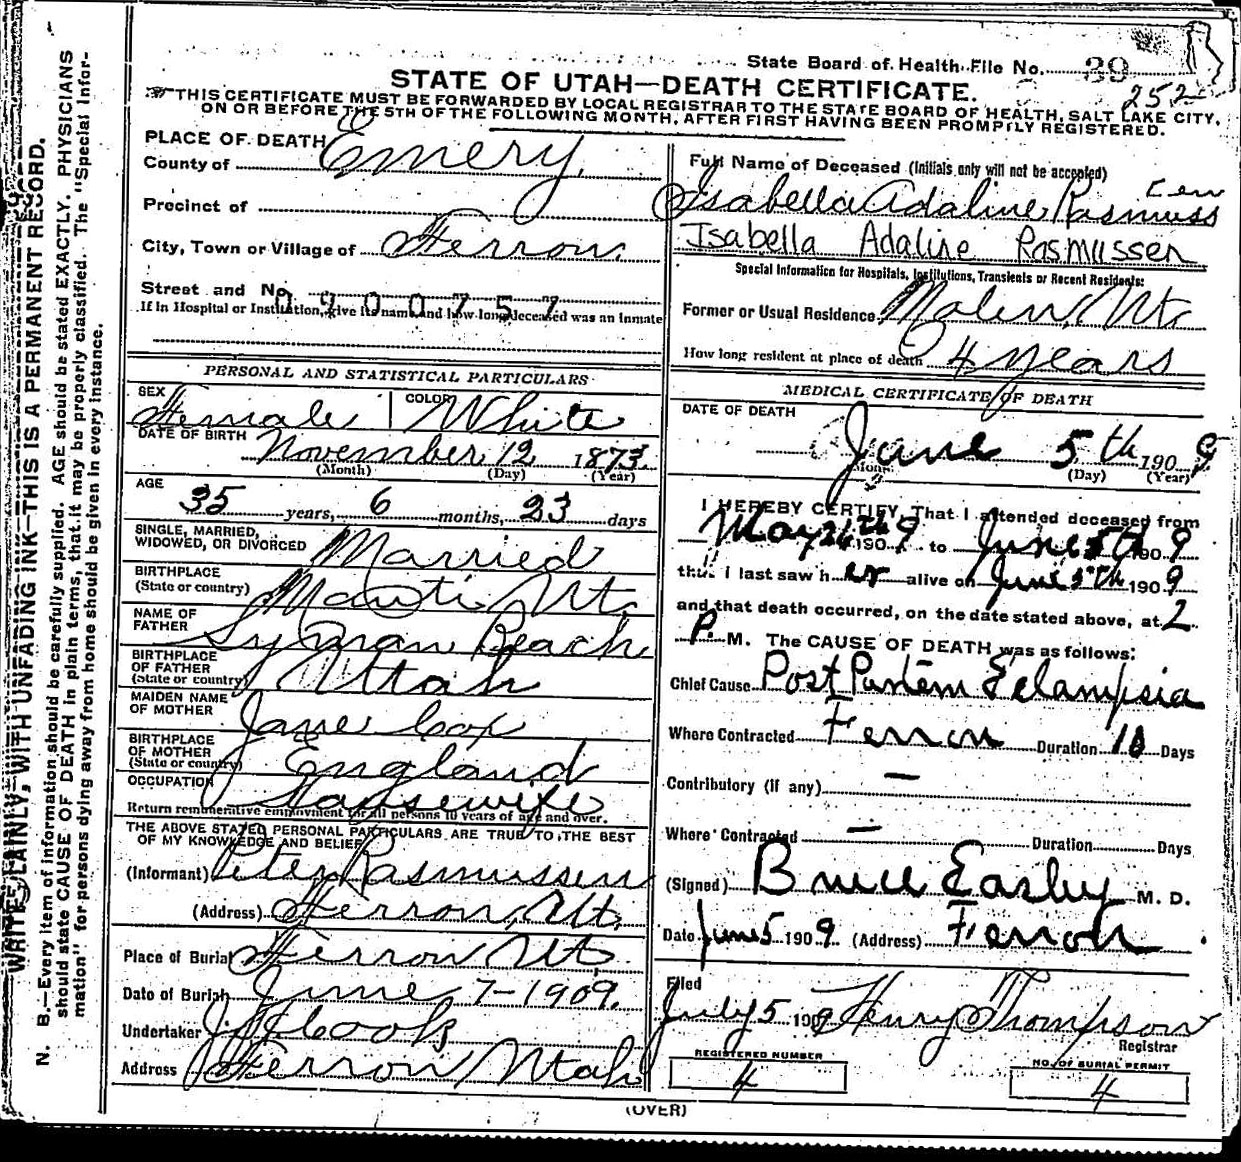 State Board of Health File No. 39
252
STATE OF UTAH—DEATH CERTIFICATE.
THIS CERTIFICATE MUST BE FORWARDED BY LOCAL REGISTRAR TO THE STATE BOARD OF HEALTH, SALT LAKE CITY,
ON OR BEFORE THE 5TH OF THE FOLLOWING MONTH, AFTER FIRST HAVING BEEN PROMPTLY REGISTERED.
WRITE PLAINLY, WITH UNFADING INK—THIS IS A PERMANENT RECORD.
N. B.—Every item of information should be carefully supplied. AGE should be stated EXACTLY. PHYSICIANS
should state CAUSE OF DEATH in plain terms, that it may be properly classified. The "Special Infor-
mation" for persons dying away from home should be given in every instance.
PLACE OF DEATH
County of Emery
Precinct of
City, Town or Village of Ferron.
Street and No.
0900757
If in Hospital or Institution, give its name and how long deceased was an inmate
Full Name of Deceased (Initials only will not be accepted)
Isabella Adaline Rasmuss
Isabella Adaline Rasmussen
Special Information for Hospitals, Institutions, Transients or Recent Residents:
Former or Usual Residence Molen, Ut.
How long resident at place of death 4 years
PERSONAL AND STATISTICAL PARTICULARS
SEX Female COLOR White
DATE OF BIRTH November 12 1873.
(Month) (Day) (Year)
AGE 35 years, 6 months, 23 days
SINGLE, MARRIED,
WIDOWED, OR DIVORCED Married
BIRTHPLACE
(State or country) Manti Ut.
NAME OF
FATHER Lyman Beach
BIRTHPLACE
OF FATHER
(State or country) Utah
MAIDEN NAME
OF MOTHER Jane Cox
BIRTHPLACE
OF MOTHER
(State or country) England
OCCUPATION Housewife
Return remunerative employment for all persons 10 years of age and over.
THE ABOVE STATED PERSONAL PARTICULARS ARE TRUE TO THE BEST
OF MY KNOWLEDGE AND BELIEF
(Informant) Peter Rasmussen
(Address) Ferron, Ut.
Place of Burial Ferron Ut.
Date of Burial June 7-1909.
Undertaker Cook
Address Ferron Utah
MEDICAL CERTIFICATE OF DEATH
DATE OF DEATH
June 5th 1909
(Day) (Year)
I HEREBY CERTIFY, That I attended deceased from
May 190 9 to June 5th 190 9
that I last saw her alive on June 5th 190 9
and that death occurred, on the date stated above, at 2
P. M. The CAUSE OF DEATH was as follows:
Chief Cause Post Partem Eclampsia
Where Contracted Ferron Duration 10 Days
Contributory (if any) —
Where Contracted — Duration Days
(Signed) Bruce Easley M. D.
Date June 5 1909. (Address) Ferron
Filed
July 5 1909 Henry Thompson
Registrar
REGISTERED NUMBER
4
NO. OF BURIAL PERMIT
4
(OVER)